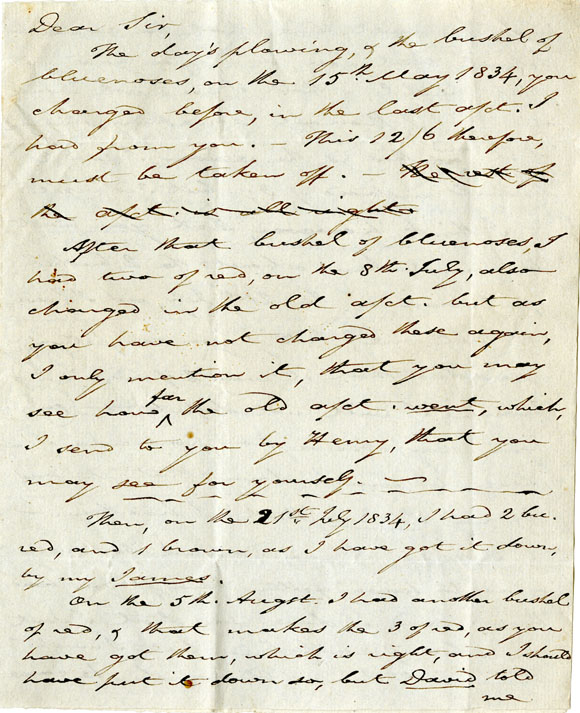 Dear Sir,
The day's plowing, & the bushel of
bluenoses, on the 15th May 1834, you
charged before, in the last acct. I
had from you. — This 12/6 therefore,
must be taken off. — The rest of
the acct. is all right.
After that bushel of bluenoses, I
had two of red, on the 8th July, also
charged in the old acct. but as
you have not charged these again,
I only mention it, that you may
see how far the old acct. went, which,
I send to you by Henry, that you
may see for yourself. —
Then, on the 21st July 1834, I had 2 bu.
red, and 1 brown, as I have got it down,
by my James.
On the 5th. Augst. I had another bushel
of red, & that makes the 3 of red, as you
have got them, which is right, and I should
have put it down so, but David told
me